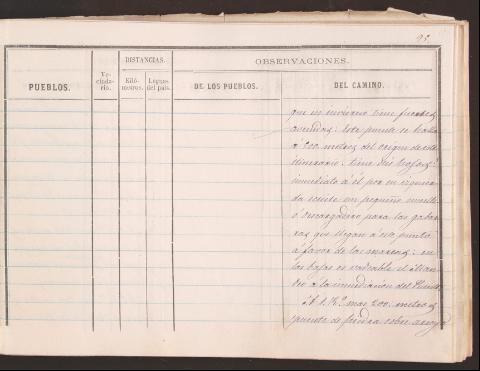 DISTANCIAS.
OBSERVACIONES.
PUEBLOS.
Ve-
cinda-
rio.
Kiló-
metros.
Leguas
del pais.
DE LOS PUEBLOS.
DEL CAMINO.
que en invierno tiene fuertes
avenidas: Este puente se halla
á 200 metros del origen de este
itinerario: tiene
inmediato á él por su izquier-
da existe un pequeño muelle
ó descargadero para las gabar-
ras que llegan á este punto
á favor de las mareas: en
las bajas es vadeable el
á la inmediacion del Puente
mas 200 metros
puente de piedra sobre arroyo